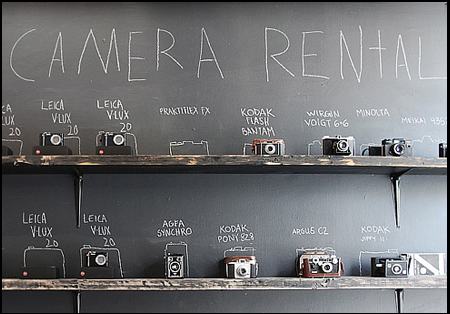 CAMERA RENTAL
LEICA
V-LUX
20
LEICA
V-LUX
20
PRAKTIFLEX FX
KODAK
FLASH
BANTAM
WIRGIN
VOIGT 6-6
MINOLTA
20
LEICA
V-LUX
20
LEICA
V-LUX
20
AGFA
SYNCHRO
KODAK
PONY 828
ARGUS C2
KODAK